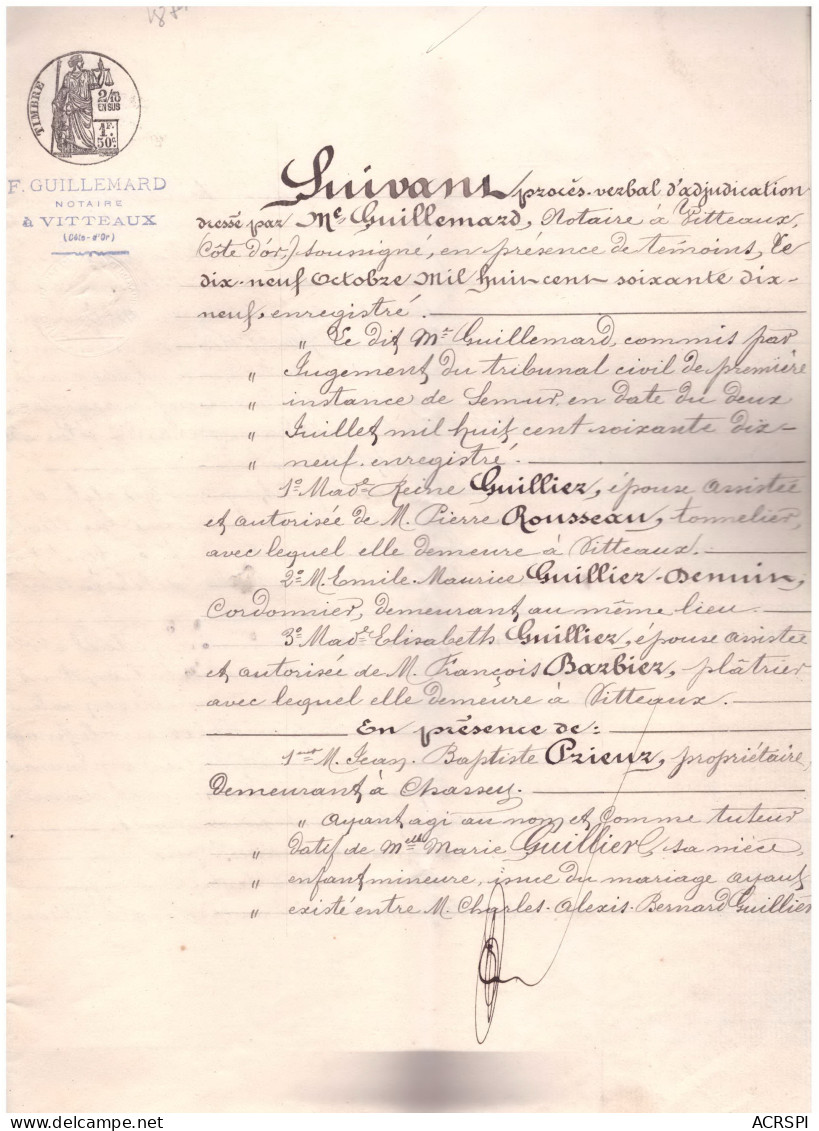 187
TIMBRE
2/10
EN SUS
1F.
50c.
F. GUILLEMARD
NOTAIRE
à VITTEAUX
(Côte-d'Or)
Suivant procès-verbal d'adjudication
dressé par Me Guillemard, Notaire à Vitteaux,
Côte d'or,) soussigné, en présence de témoins, le
dix-neuf Octobre Mil huit cent soixante dix-
neuf, enregistré.
" Le dit Me Guillemard, commis par
" Jugement du tribunal civil de première
" instance de Semur, en date du deux
" Juillet mil huit cent soixante dix-
" neuf. enregistré.
1º Made Reine Guillier, épouse assistée
et autorisée de M. Pierre Rousseau, tonnelier,
avec lequel elle demeure à Vitteaux.
2º M. Emile-Maurice Guillier-Denuin,
Cordonnier, demeurant au même lieu.
3º Made Elisabeth Guillier, épouse assistée
et autorisée de M. François Barbier, plâtrier
avec lequel elle demeure à Vitteaux.
En présence de:
1ent M. Jean-Baptiste Prieur, propriétaire,
demeurant à Chassey.
" ayant agi au nom et comme tuteur
" datif de Melle Marie Guillier, sa nièce,
" enfant mineure, issue du mariage ayant
" existé entre M. Charles-Alexis-Bernard Guillier
ACRSPI